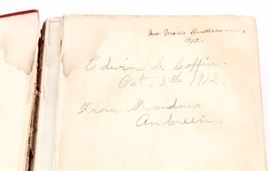 Mrs Marie Anderson,
1912.
Edwin G. Coffin.
Oct. 5th 1912.
From Grandma
Andersen.